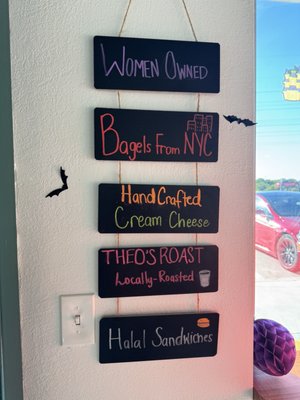 Women Owned
Bagels From NYC
HandCrafted
Cream Cheese
THEO'S ROAST
Locally-Roasted
Halal Sandwiches